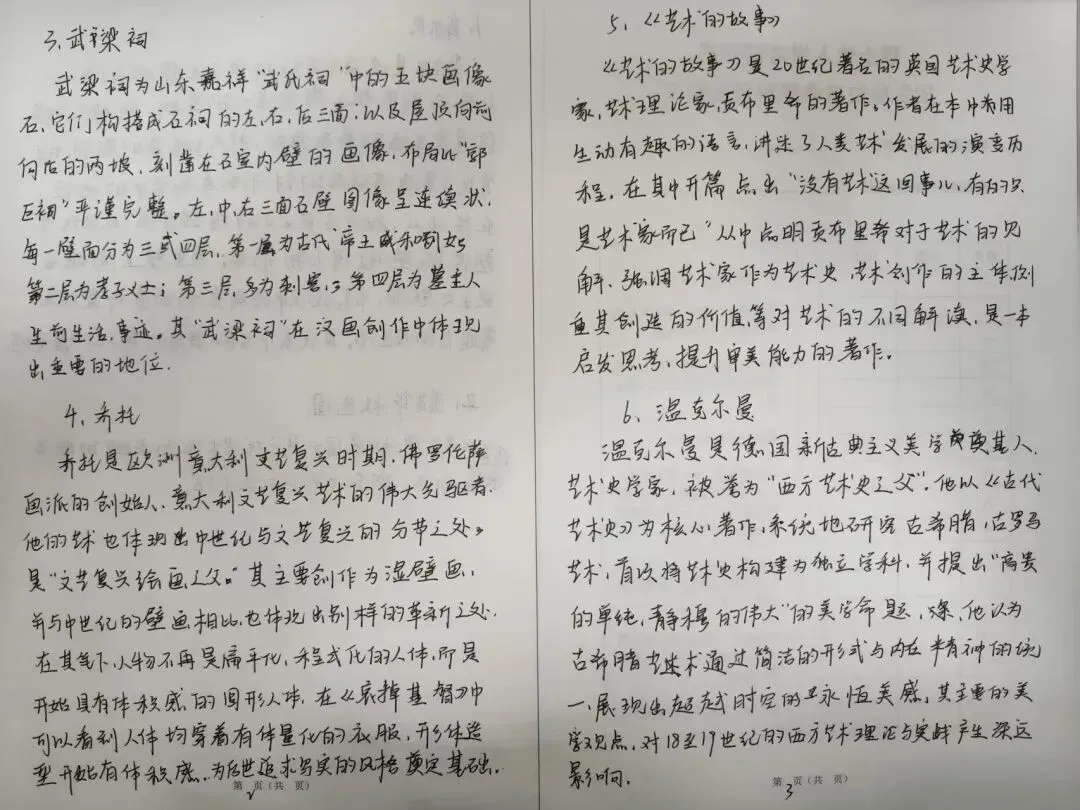 3. 武梁祠
武梁祠为山东嘉祥“武氏祠”中的五块画像
石,它们构搭成石祠的左,右,后三面;以及屋顶向前
向后的两坡,刻凿在石室内壁的画像,布局比“郭
巨祠”严谨完整。左,中,右三面石壁图像呈连续状,
每一壁面分为三或四层,第一层为古代帝王或列女;
第二层为孝子义士;第三层,多为刺客,;第四层为墓主人
生前生活,事迹。其“武梁祠”在汉画创作中体现
出重要的地位.
4. 乔托
乔托是欧洲意大利文艺复兴时期,佛罗伦萨
画派的创始人、意大利文艺复兴艺术的伟大先驱者.
他的艺术也体现出中世纪与文艺复兴的分节之处,
是“文艺复兴绘画之父。”其主要创作为湿壁画,
并与中世纪的壁画相比,也体现出别样的革新之处.
在其笔下,人物不再是扁平化,程式化的人体,而是
开始具有体积感的圆形人体,在《哀悼基督》中
可以看到人体均穿着有体量化的衣服,开形体造
型开始有体积感.为后世追求写实的风格奠定基础.
第2页(共 页)
5、《艺术的故事》
《艺术的故事》是20世纪著名的英国艺术史学
家,艺术理论家,贡布里希的著作。作者在本书用
生动有趣的语言,讲述了人类艺术发展的演变历
程,在其中开篇点出“没有艺术这回事儿,有的只
是艺术家而已”从中点明贡布里希对于艺术的见
解,强调艺术家作为艺术史,艺术创作的主体,侧
重其创造的价值,等对艺术的不同解读,是一本
启发思考,提升审美能力的著作。
6、温克尔曼
温克尔曼是德国新古典主义美学奠基人,
艺术史学家,被誉为“西方艺术史之父”.他以《古代
艺术史》为核心著作,系统地研究古希腊,古罗马
艺术,首次将艺术史构建为独立学科,并提出“高贵
的单纯,静穆的伟大”的美学命题,他认为
古希腊艺术通过简洁的形式与内在精神的统
一,展现出超越时空的永恒美感,其主要的美
学观点,对18至19世纪的西方艺术理论与实践产生深远
影响.
第3页(共 页)